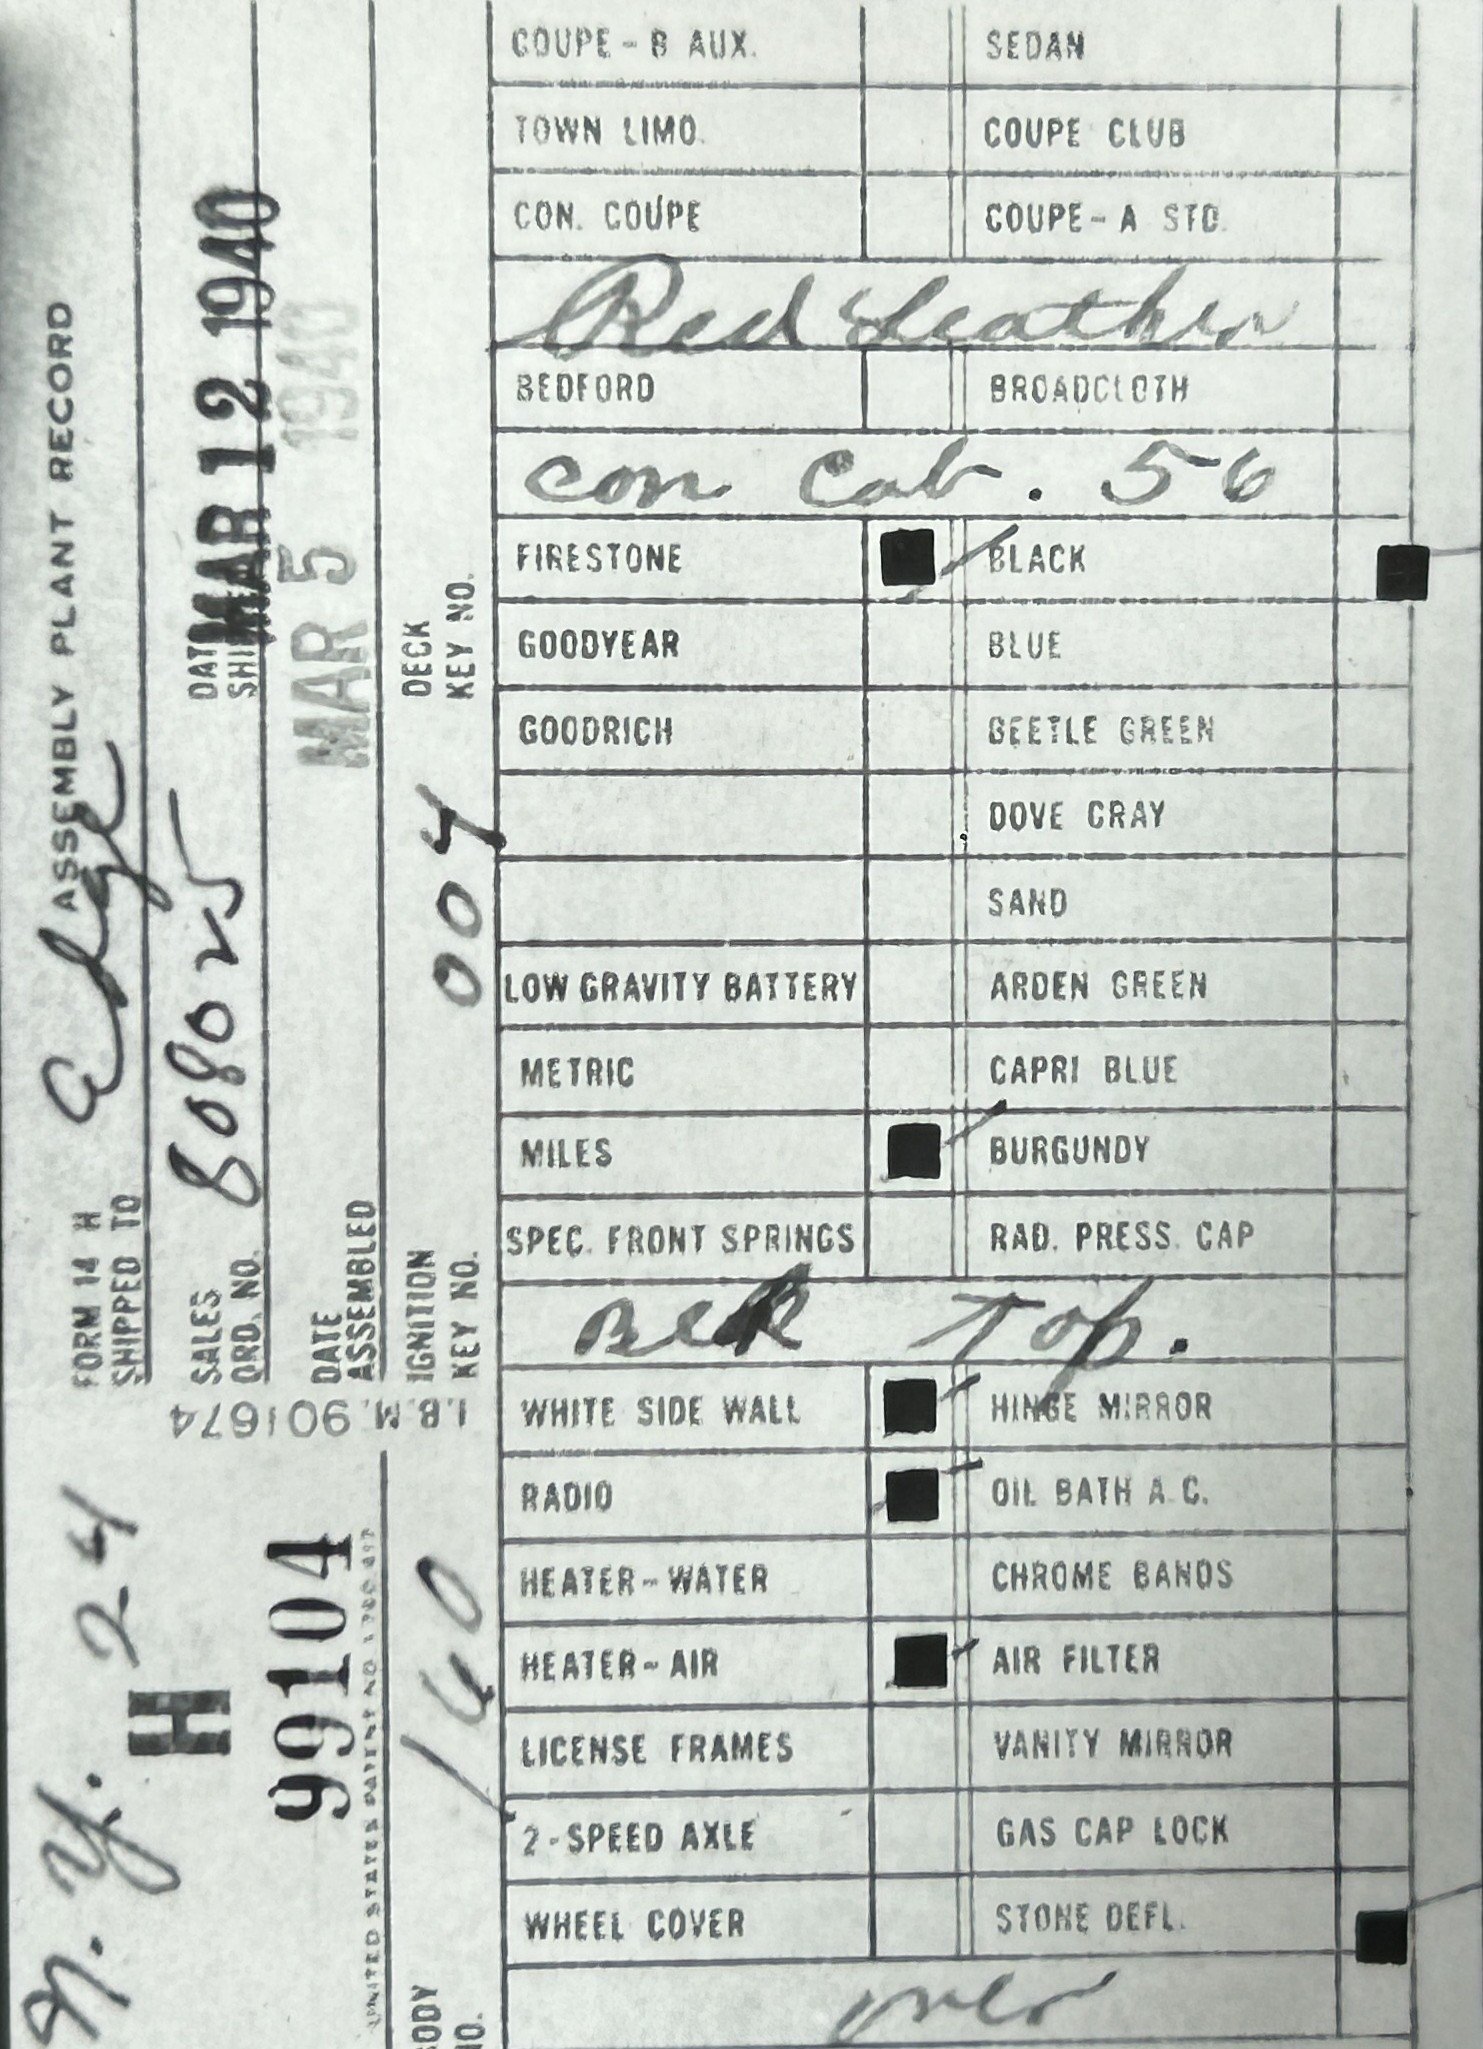 FORM 14 H ASSEMBLY PLANT RECORD
SHIPPED TO Edge
SALES ORD. NO. 808025
DATE SHIPPED MAR 12 1940
DATE ASSEMBLED MAR 5 1940
IGNITION KEY NO. 004
DECK KEY NO.
I.B.M. 901674
N. Y. 24
H
99104
UNITED STATES PATENT NO.
BODY NO. 160
COUPE-B AUX. SEDAN
TOWN LIMO. COUPE CLUB
CON. COUPE COUPE-A STD.
Red Leather
BEDFORD BROADCLOTH
Con Cab. 56
FIRESTONE BLACK
GOODYEAR BLUE
GOODRICH BEETLE GREEN
DOVE GRAY
SAND
LOW GRAVITY BATTERY ARDEN GREEN
METRIC CAPRI BLUE
MILES BURGUNDY
SPEC. FRONT SPRINGS RAD. PRESS. CAP
BLK Top.
WHITE SIDE WALL HINGE MIRROR
RADIO OIL BATH A.C.
HEATER-WATER CHROME BANDS
HEATER-AIR AIR FILTER
LICENSE FRAMES VANITY MIRROR
2-SPEED AXLE GAS CAP LOCK
WHEEL COVER STONE DEFL.
over